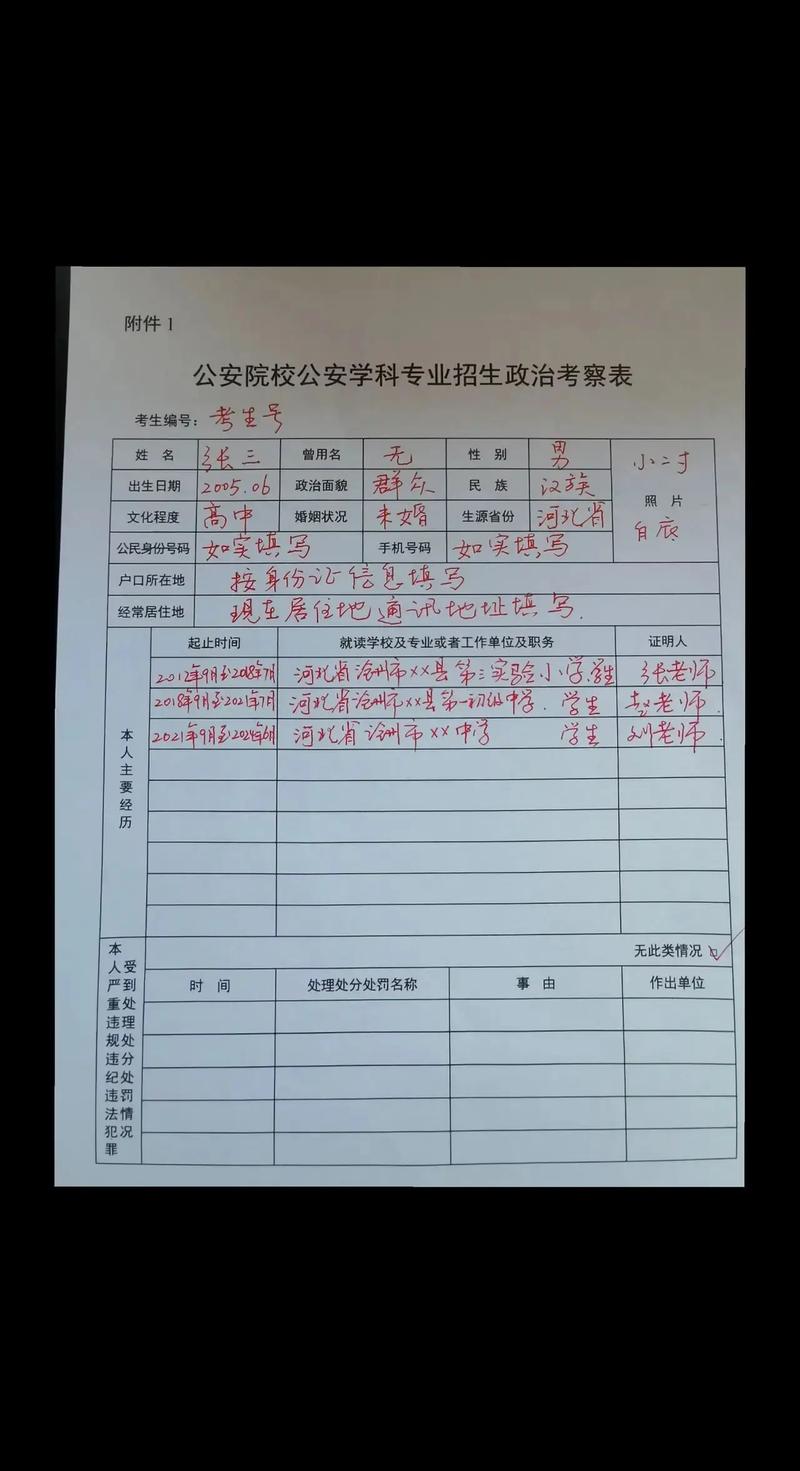 附件 1
公安院校公安学科专业招生政治考察表
考生编号：考生号
姓 名 张三 曾用名 无 性 别 男 小二寸
出生日期 2005.06 政治面貌 群众 民 族 汉族 照 片
文化程度 高中 婚姻状况 未婚 生源省份 河北省 白底
公民身份号码 如实填写 手机号码 如实填写
户口所在地 按身份证信息填写
经常居住地 现在居住地通讯地址填写.
本人主要经历
起止时间 就读学校及专业或者工作单位及职务 证明人
2012年9月至2018年7月 河北省沧州市××县第三实验小学学生 张老师
2018年9月至2021年7月 河北省沧州市××县第一初级中学. 学生 赵老师.
2021年9月至2024年6月 河北省沧州市××中学 学生 刘老师.
本人受到严重处理违规处分违纪处罚违法情况犯罪
无此类情况 □✓
时 间 处理处分处罚名称 事 由 作出单位